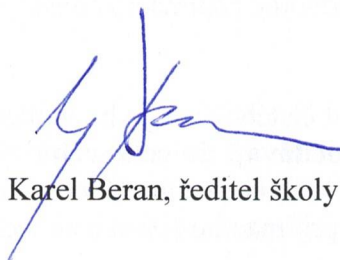 Karel Beran, ředitel školy